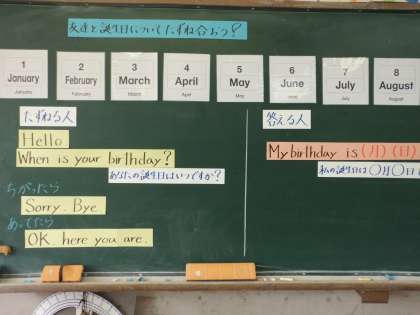 友達と誕生日についてたずね合おう?
1 January January
2 February February
3 March March
4 April April
5 May May
6 June June
7 July July
8 August August
たずねる人
答える人
Hello
When is your birthday?
あなたの誕生日はいつですか?
My birthday is (月) (日)
私の誕生日は〇月〇日
ちがったら
Sorry. Bye.
あってたら
OK. here you are.